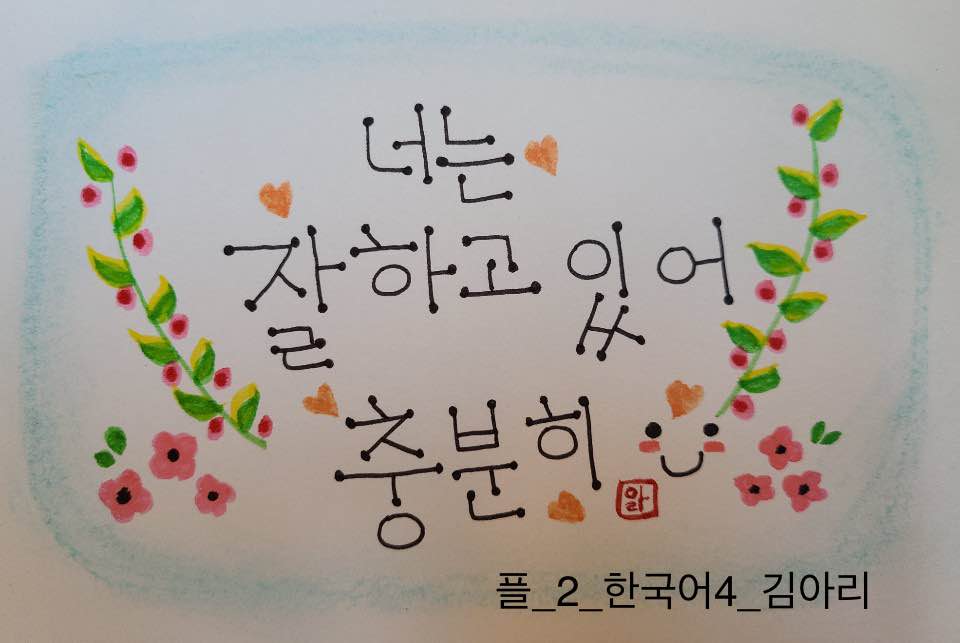 너는
잘하고 있어
충분히
플_2_한국어4_김아리